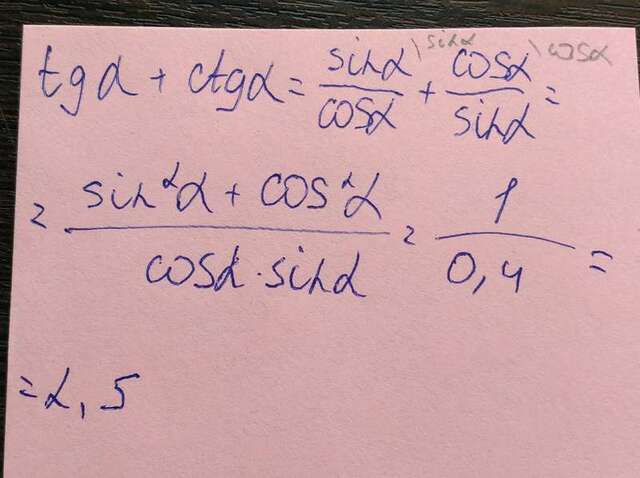 tgα + ctgα = sinα/cosα \sinα + cosα/sinα \cosα =
= sin²α + cos²α / cosα · sinα = 1 / 0,4 =
= 2,5